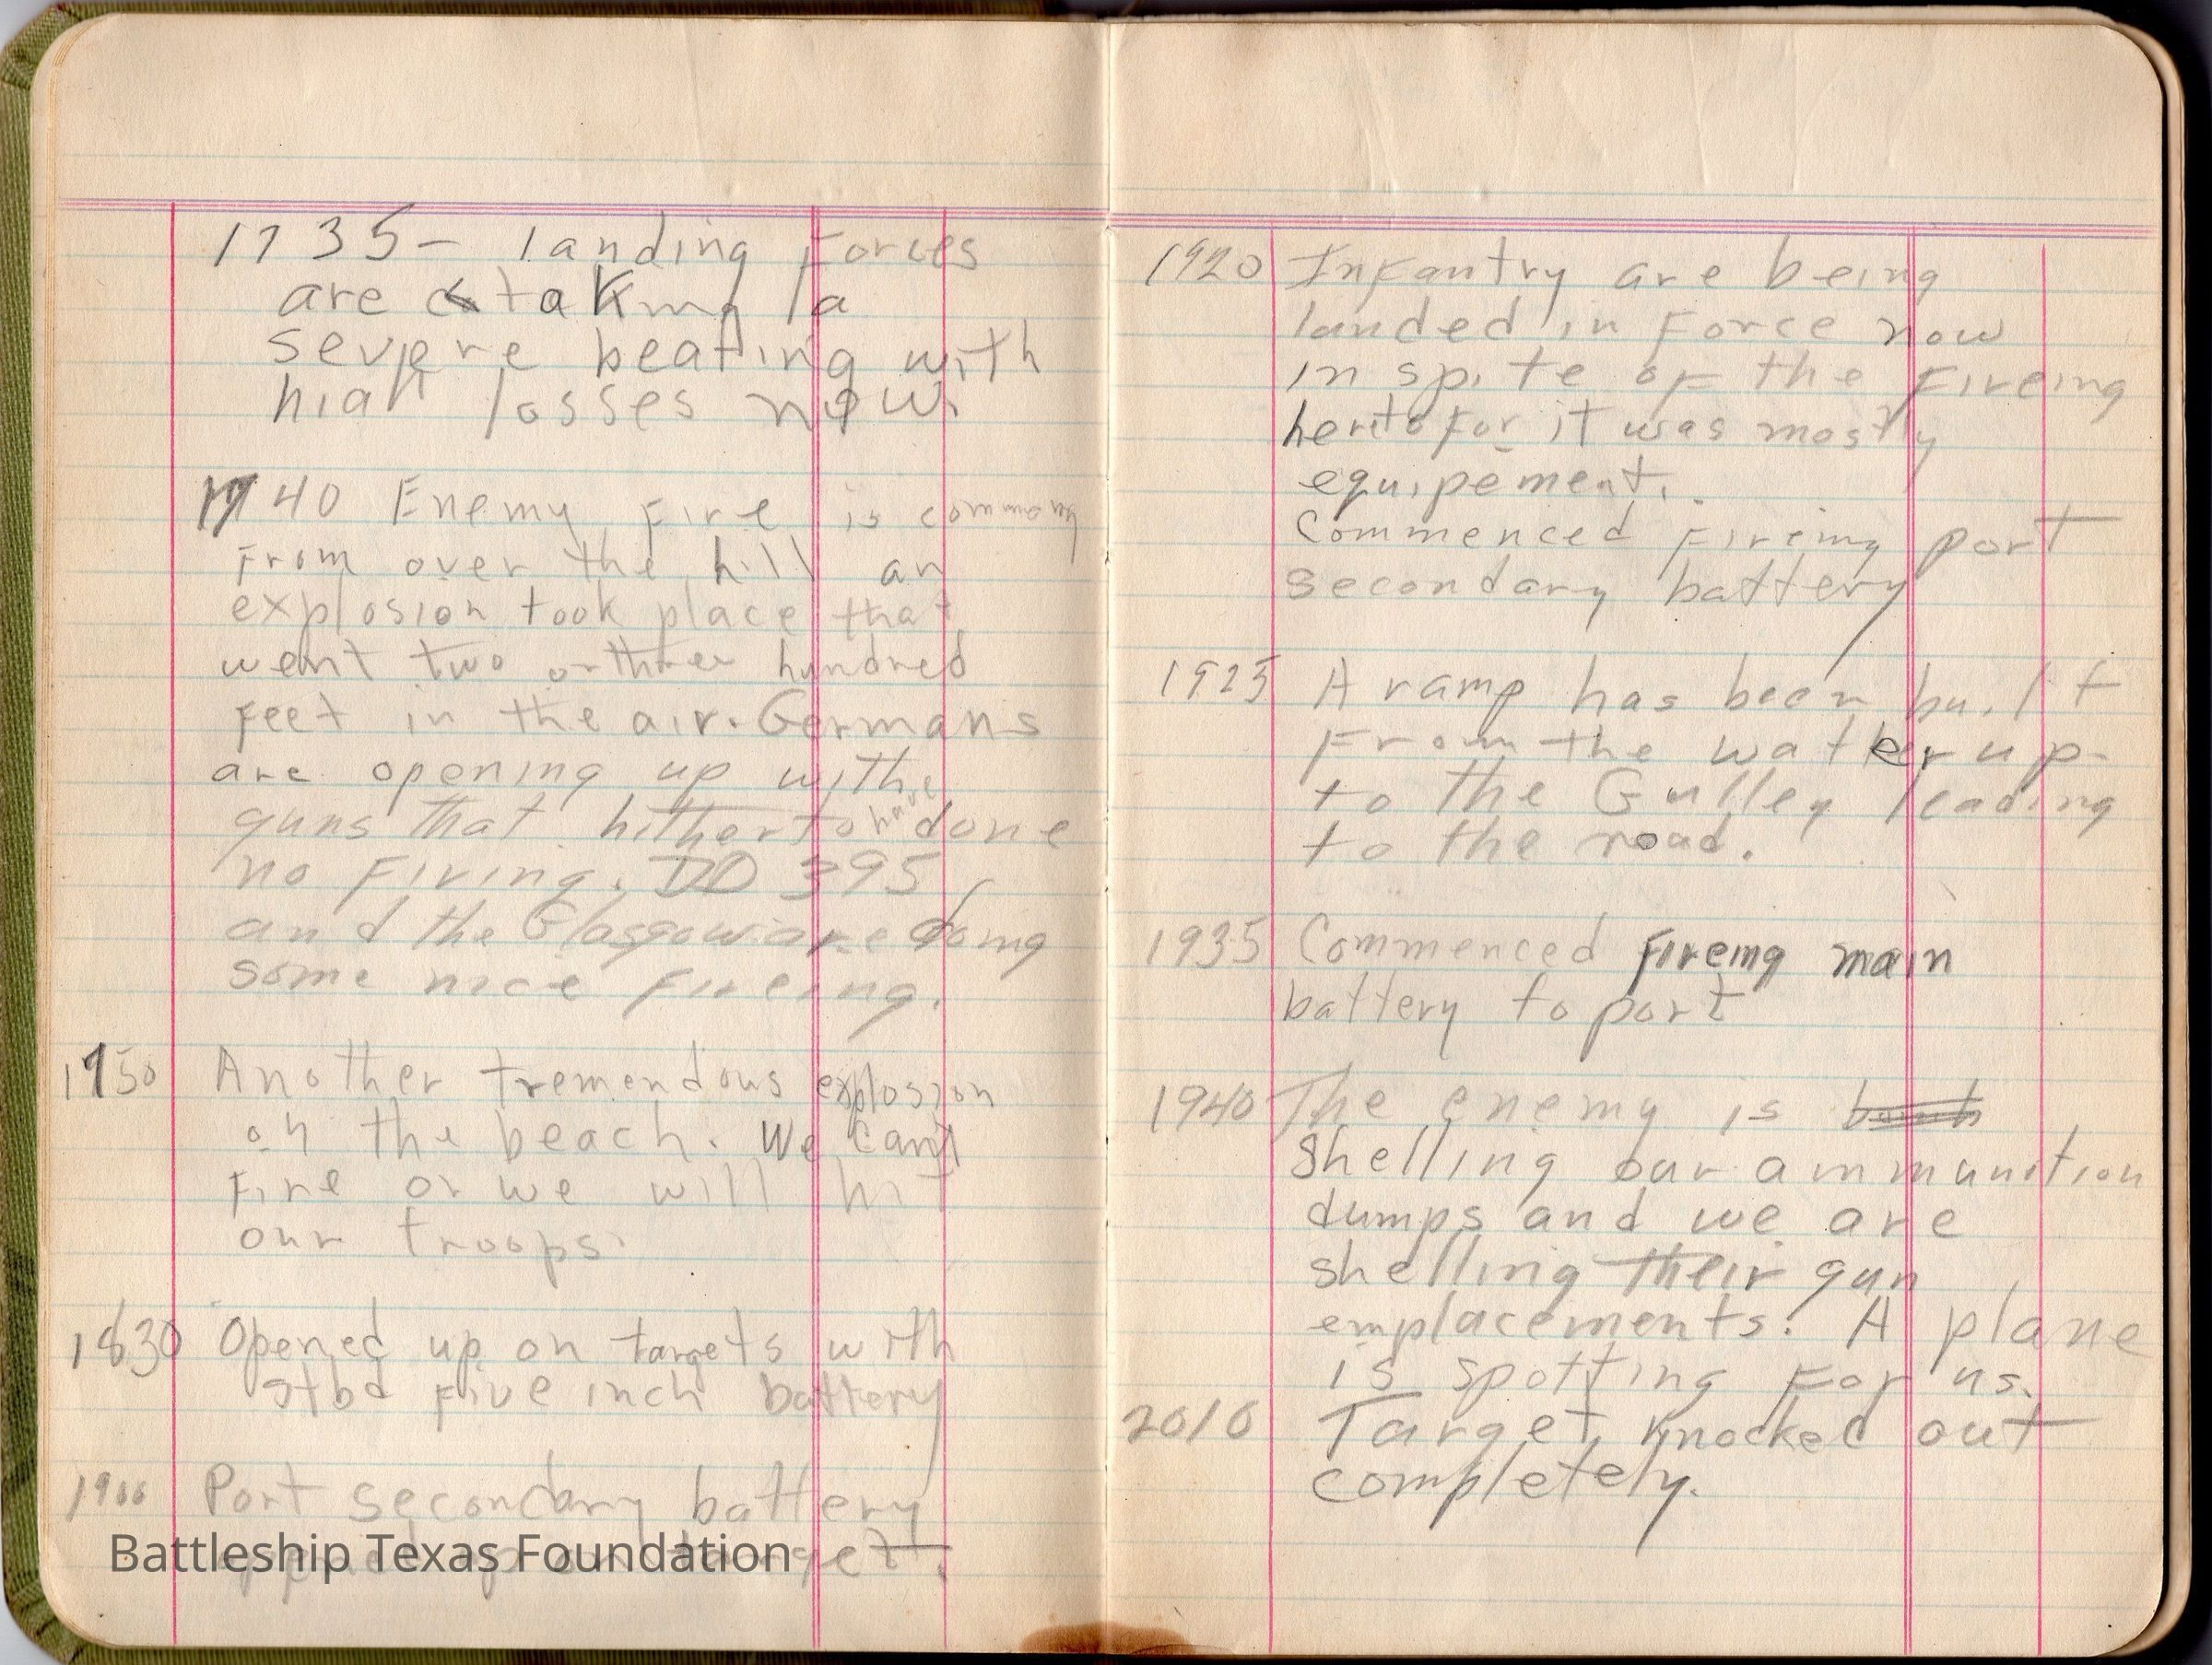 1735- landing Forces
are taking a
severe beating with
high losses now.
1740 Enemy Fire is comming
From over the hill an
explosion took place that
went two or three hundred
Feet in the air. Germans
are opening up with
guns that hitherto have done
no Firing. DD 395
and the Glasgow are doing
some nice Fireing.
1750 Another tremendous explosion
on the beach. We can't
Fire or we will hit
our troops.
1830 Opened up on targets with
stbd Five inch battery
1900 Port secondary battery
opened up on target.
Battleship Texas Foundation
1920 Infantry are being
landed in Force now
in spite oF the Fireing
heretoFor it was mostly
equipement.
Commenced Fireing port
secondary battery
1925 A ramp has been built
From the water up-
to the Gulley leading
to the road.
1935 Commenced Fireing main
battery to port
1940 The enemy is
shelling our ammunition
dumps and we are
shelling their gun
emplacements. A plane
is spotting For us.
2010 Target knocked out
completely.